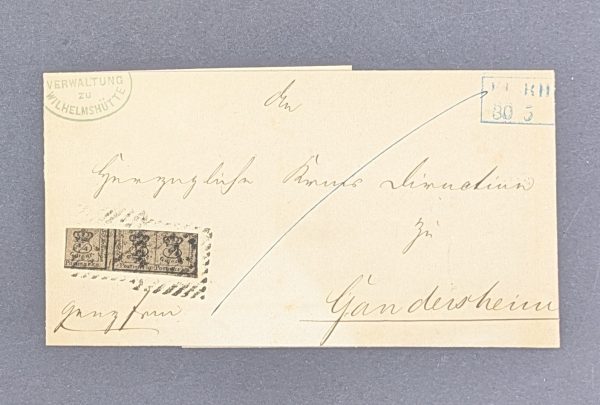 VERWALTUNG
ZU
WILHELMSHÜTTE
An
Herzogliche Kreis Direction
zu
Gandersheim
ganz frei
80 5